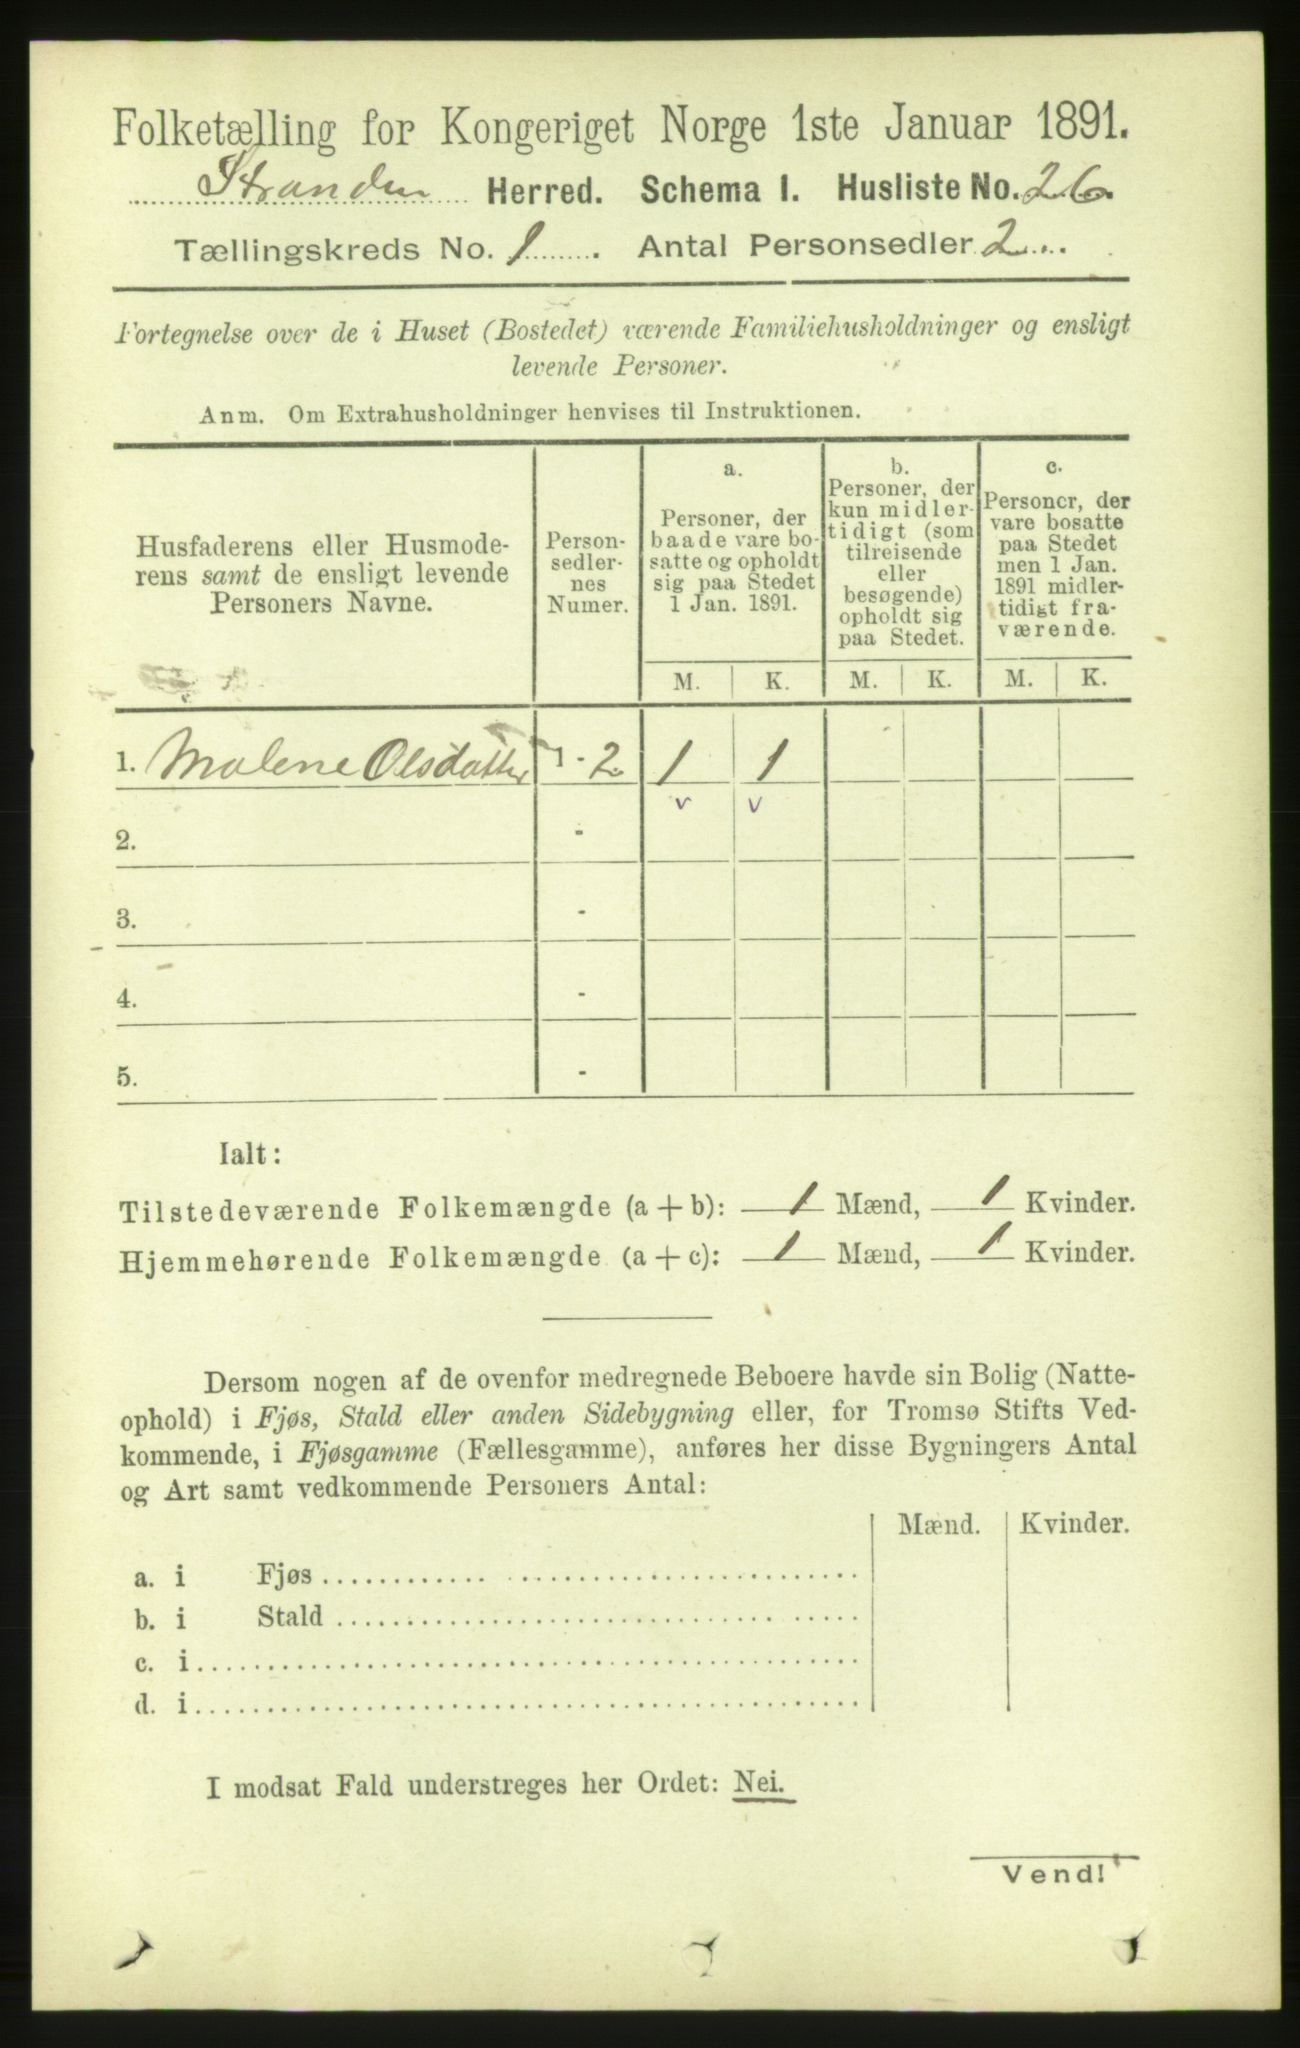 Folketælling for Kongeriget Norge 1ste Januar 1891.
Stranden Herred. Schema 1. Husliste No. 26.
Tællingskreds No. 1. Antal Personsedler 2
Fortegnelse over de i Huset (Bostedet) værende Familiehusholdninger og ensligt
levende Personer.
Anm. Om Extrahusholdninger henvises til Instruktionen.
Husfaderens eller Husmode-
rens samt de ensligt levende
Personers Navne.
Person-
sedler-
nes
Numer.
a.
Personer, der
baade vare bo-
satte og opholdt
sig paa Stedet
1 Jan. 1891.
b.
Personer, der
kun midler-
tidigt (som
tilreisende
eller
besøgende)
opholdt sig
paa Stedet.
c.
Personer, der
vare bosatte
paa Stedet
men 1 Jan.
1891 midler-
tidigt fra-
værende.
M. K. M. K. M. K.
1. Malene Olsdatter 1 - 2 1 1
v v
2. -
3. -
4. -
5. -
Ialt:
Tilstedeværende Folkemængde (a + b): 1 Mænd, 1 Kvinder.
Hjemmehørende Folkemængde (a + c): 1 Mænd, 1 Kvinder.
Dersom nogen af de ovenfor medregnede Beboere havde sin Bolig (Natte-
ophold) i Fjøs, Stald eller anden Sidebygning eller, for Tromsø Stifts Ved-
kommende, i Fjøsgamme (Fællesgamme), anføres her disse Bygningers Antal
og Art samt vedkommende Personers Antal:
Mænd. Kvinder.
a. i Fjøs
b. i Stald
c. i
d. i
I modsat Fald understreges her Ordet: Nei.
Vend!